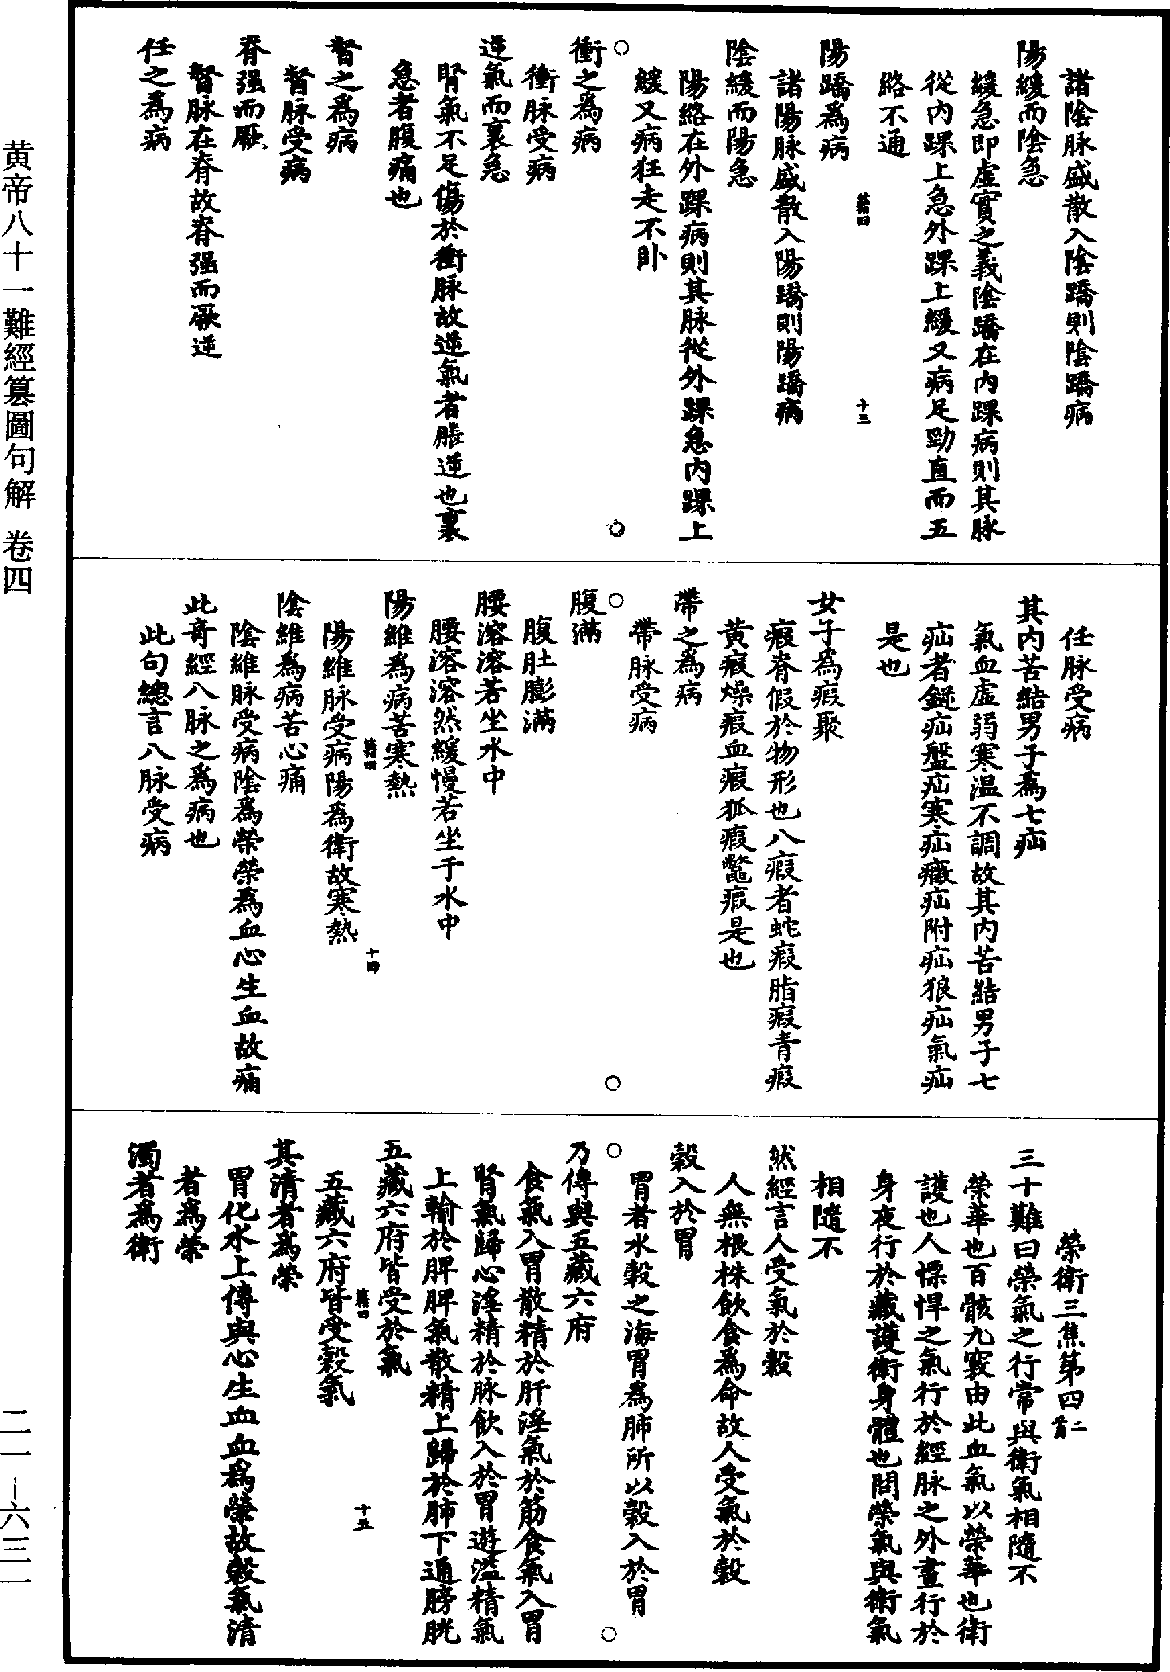 諸陰脉盛散入陰蹻則陰蹻病
陽緩而陰急
緩急即虛實之義陰蹻在內踝病則其脉
從內踝上急外踝上緩又病足勁直而五
絡不通
陽蹻爲病
諸陽脉盛散入陽蹻則陽蹻病
陰緩而陽急
陽絡在外踝病則其脉從外踝急內踝上
緩又病狂走不卧
衝之爲病
衝脉受病
逆氣而裏急
腎氣不足傷於衝脉故逆氣者脹逆也裏
急者腹痛也
督之爲病
督脉受病
脊强而厥
督脉在脊故脊强而厥逆
任之爲病
任脉受病
其內苦結男子爲七疝
氣血虛弱寒温不調故其內苦結男子七
疝者𤺄疝盤疝寒疝癥疝附疝狼疝氣疝
是也
女子爲瘕聚
瘕脊假於物形也八瘕者蛇瘕脂瘕青瘕
黃瘕燥瘕血瘕狐瘕鼈瘕是也
帶之爲病
帶脉受病
腹滿
腹肚膨滿
腰溶溶若坐水中
腰溶溶然緩慢若坐于水中
陽維爲病苦寒熱
陽維脉受病陽爲衛故寒熱
陰維爲病苦心痛
陰維脉受病陰爲榮榮爲血心生血故痛
此奇經八脉之爲病也
此句總言八脉受病
榮衛三焦第四二首
三十難曰榮氣之行常與衛氣相隨不
榮華也百骸九竅由此血氣以榮華也衛
護也人慓悍之氣行於經脉之外晝行於
身夜行於藏護衛身體也問榮氣與衛氣
相隨不
然經言人受氣於穀
人無根株飲食爲命故人受氣於穀
穀入於胃
胃者水穀之海胃爲肺所以穀入於胃
乃傳與五藏六府
食氣入胃散精於肝淫氣於筋食氣入胃
腎氣歸心淫精於脉飲入於胃遊溢精氣
上輸於脾脾氣散精上歸於肺下通膀胱
五藏六府皆受於氣
五藏六府皆受穀氣
其清者爲榮
胃化水上傳與心生血血爲榮故穀氣清
者爲榮
濁者爲衛
黄帝八十一難經纂圖句解 卷四
二一—六三一